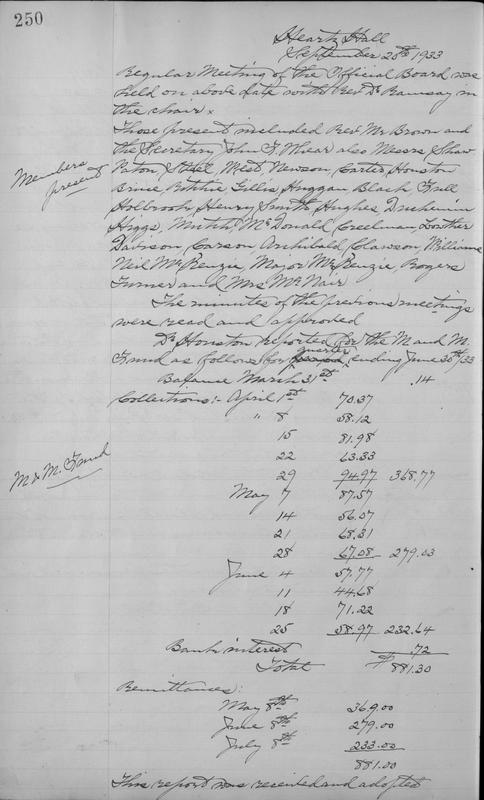 250
Heartz Hall
September 28th 1933
Regular Meeting of the Official Board was
held on above date with Rev. Dr Ramsay in
the chair.
Those present included Rev. Mr Brown and
the Secretary John F. Whear also Messrs Shaw
Members present
Paton Steel, West, Newson, Carter, Houston
Brice Ritchie Gillis, Huggan Black Trull
Holbrook, Henry Smith, Hughes, Duchemin
Higgs, Mutch, McDonald, Creelman, Lowther
Davison, Carson Archibald, Clawson, Williams
Neil McKenzie, Major McKenzie, Rogers
Turner and Mrs McNair
The minutes of the previous meetings
were read and approved
Dr Houston reported for the M and M.
Fund as follows for quarter ending June 30th/33
Balance March 31st .14
Collections:- April 1st 70.37
" 8 58.12
15 81.98
22 63.33
M & M. Fund
29 94.97 368.77
May 7 87.57
14 56.07
21 68.31
28 67.08 279.03
June 4 57.77
11 44.68
18 71.22
25 58.97 232.64
Bank interest .72
Total $881.30
Remittances:
May 8th 369.00
June 8th 279.00
July 8th 233.00
881.00
This report was received and adopted